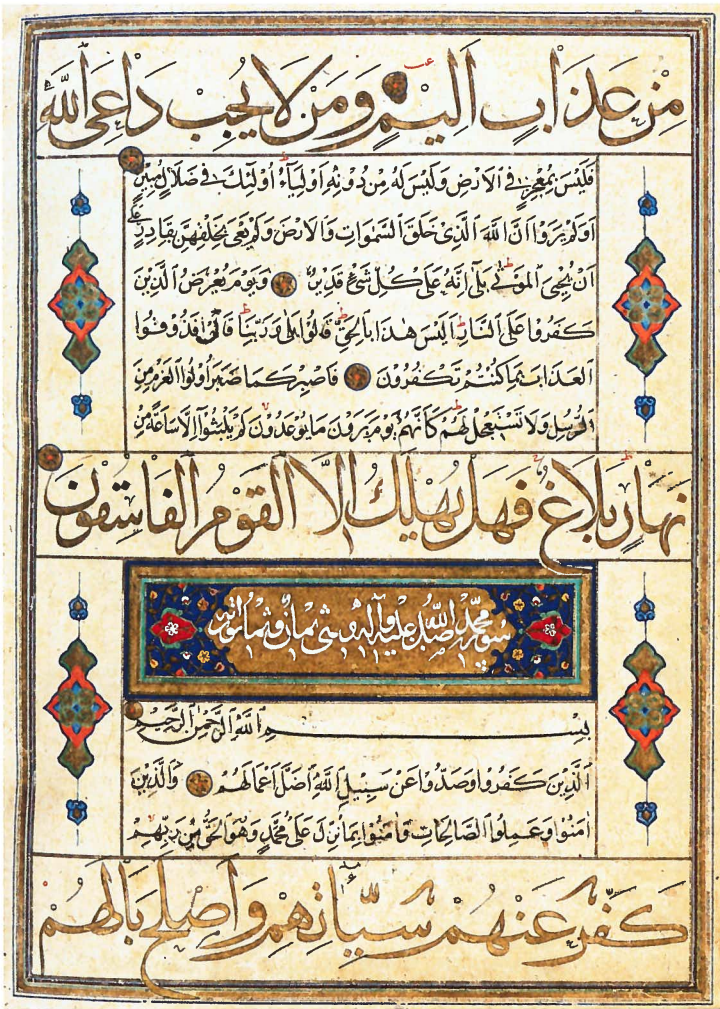 مِنْ عَذَابٍ اَلِيمٍ وَمَنْ لَا يُجِبْ دَاعِيَ اللّٰهِ
فَلَيْسَ بِمُعْجِزٍ فِي الْاَرْضِ وَلَيْسَ لَهُ مِنْ دُونِهِ اَوْلِيَاءُ اُولٰئِكَ فِي ضَلَالٍ مُبِينٍ
اَوَلَمْ يَرَوْا اَنَّ اللّٰهَ الَّذِي خَلَقَ السَّمٰوَاتِ وَالْاَرْضَ وَلَمْ يَعْيَ بِخَلْقِهِنَّ بِقَادِرٍ عَلٰى
اَنْ يُحْيِيَ الْمَوْتٰى بَلٰى اِنَّهُ عَلٰى كُلِّ شَيْءٍ قَدِيرٌ وَيَوْمَ يُعْرَضُ الَّذِينَ
كَفَرُوا عَلَى النَّارِ اَلَيْسَ هٰذَا بِالْحَقِّ قَالُوا بَلٰى وَرَبِّنَا قَالَ فَذُوقُوا
الْعَذَابَ بِمَا كُنْتُمْ تَكْفُرُونَ فَاصْبِرْ كَمَا صَبَرَ اُولُوا الْعَزْمِ مِنَ
الرُّسُلِ وَلَا تَسْتَعْجِلْ لَهُمْ كَاَنَّهُمْ يَوْمَ يَرَوْنَ مَا يُوعَدُونَ لَمْ يَلْبَثُوا اِلَّا سَاعَةً مِنْ
نَهَارٍ بَلَاغٌ فَهَلْ يُهْلَكُ اِلَّا الْقَوْمُ الْفَاسِقُونَ
سورة محمد صلى الله عليه وآله ثمان وثلاثون
بِسْمِ اللّٰهِ الرَّحْمٰنِ الرَّحِيمِ
اَلَّذِينَ كَفَرُوا وَصَدُّوا عَنْ سَبِيلِ اللّٰهِ اَضَلَّ اَعْمَالَهُمْ وَالَّذِينَ
اٰمَنُوا وَعَمِلُوا الصَّالِحَاتِ وَاٰمَنُوا بِمَا نُزِّلَ عَلٰى مُحَمَّدٍ وَهُوَ الْحَقُّ مِنْ رَبِّهِمْ
كَفَّرَ عَنْهُمْ سَيِّئَاتِهِمْ وَاَصْلَحَ بَالَهُمْ